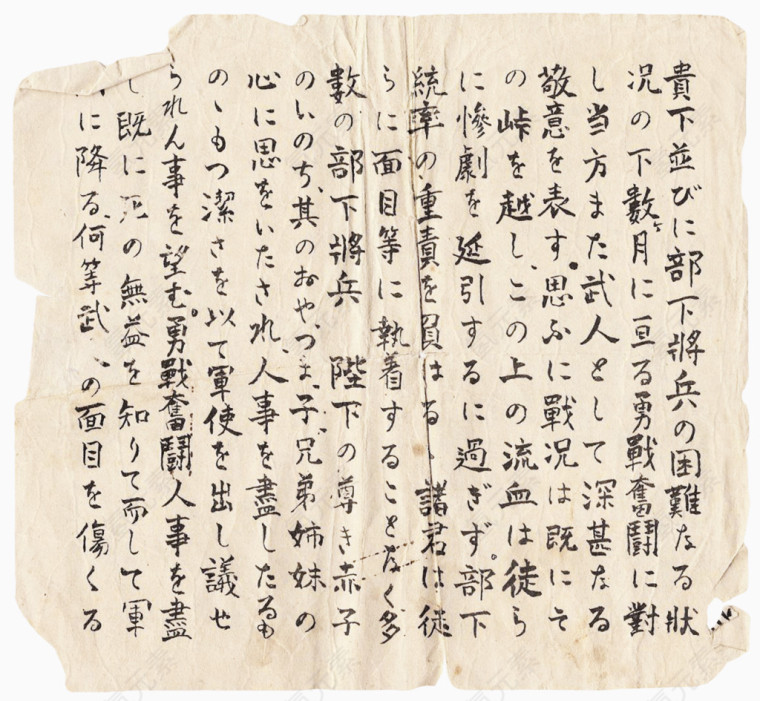 貴下並びに部下將兵の困難なる狀
況の下數ヶ月に亘る勇戰奮鬪に對
し当方また武人として深甚なる
敬意を表す。思ふに戰況は既にそ
の峠を越し、この上の流血は徒ら
に慘劇を延引するに過ぎず。部下
統率の重責を負はるゝ諸君は徒
らに面目等に執着することなく多
數の部下將兵 陛下の尊き赤子
のいのち、其のおや、つま、子、兄弟姉妹の
心に思をいたされ、人事を盡したるも
のゝもつ潔さを以て軍使を出し議せ
られん事を望む。勇戰奮鬪人事を盡
し既に死の無益を知りて而して軍
に降る、何等武人の面目を傷くる